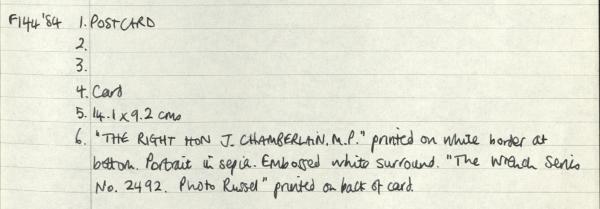 F144'84 1. POSTCARD
2.
3.
4. Card
5. 14.1 x 9.2 cms
6. "THE RIGHT HON J. CHAMBERLAIN. M.P." printed on white border at
bottom. Portrait in sepia. Embossed white surround. "The Wrench Series
No. 2492. Photo Russel" printed on back of card.